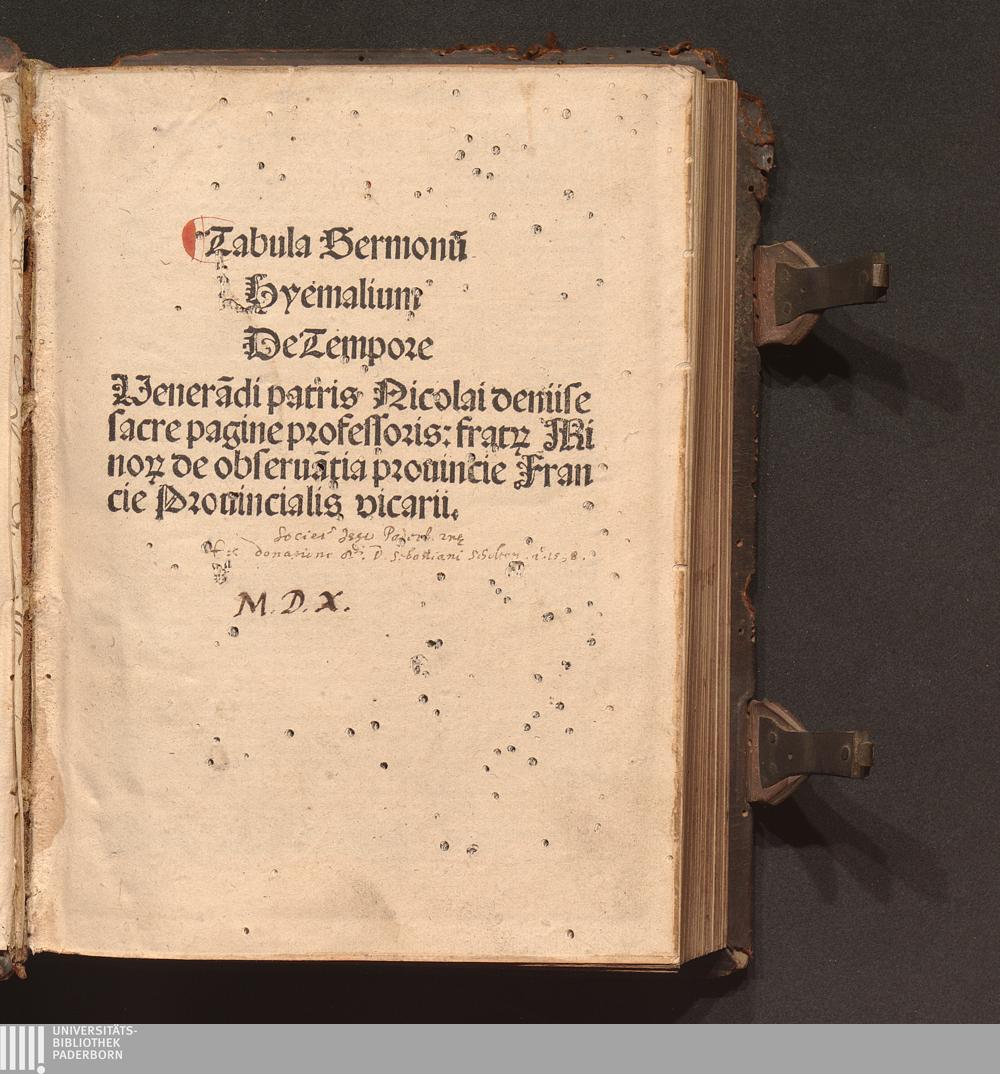 Tabula Sermonū
Hyemalium
De Tempore
Uenerādi patris Nicolai deniise
sacre pagine professoris: fratꝝ Mi
noꝝ de obseruātia prouincie Fran
cie Prouincialis vicarii.
Societ. Jesu Paderb.
donarunt D. Sebastiani
M.D.X.
UNIVERSITÄTS-
BIBLIOTHEK
PADERBORN